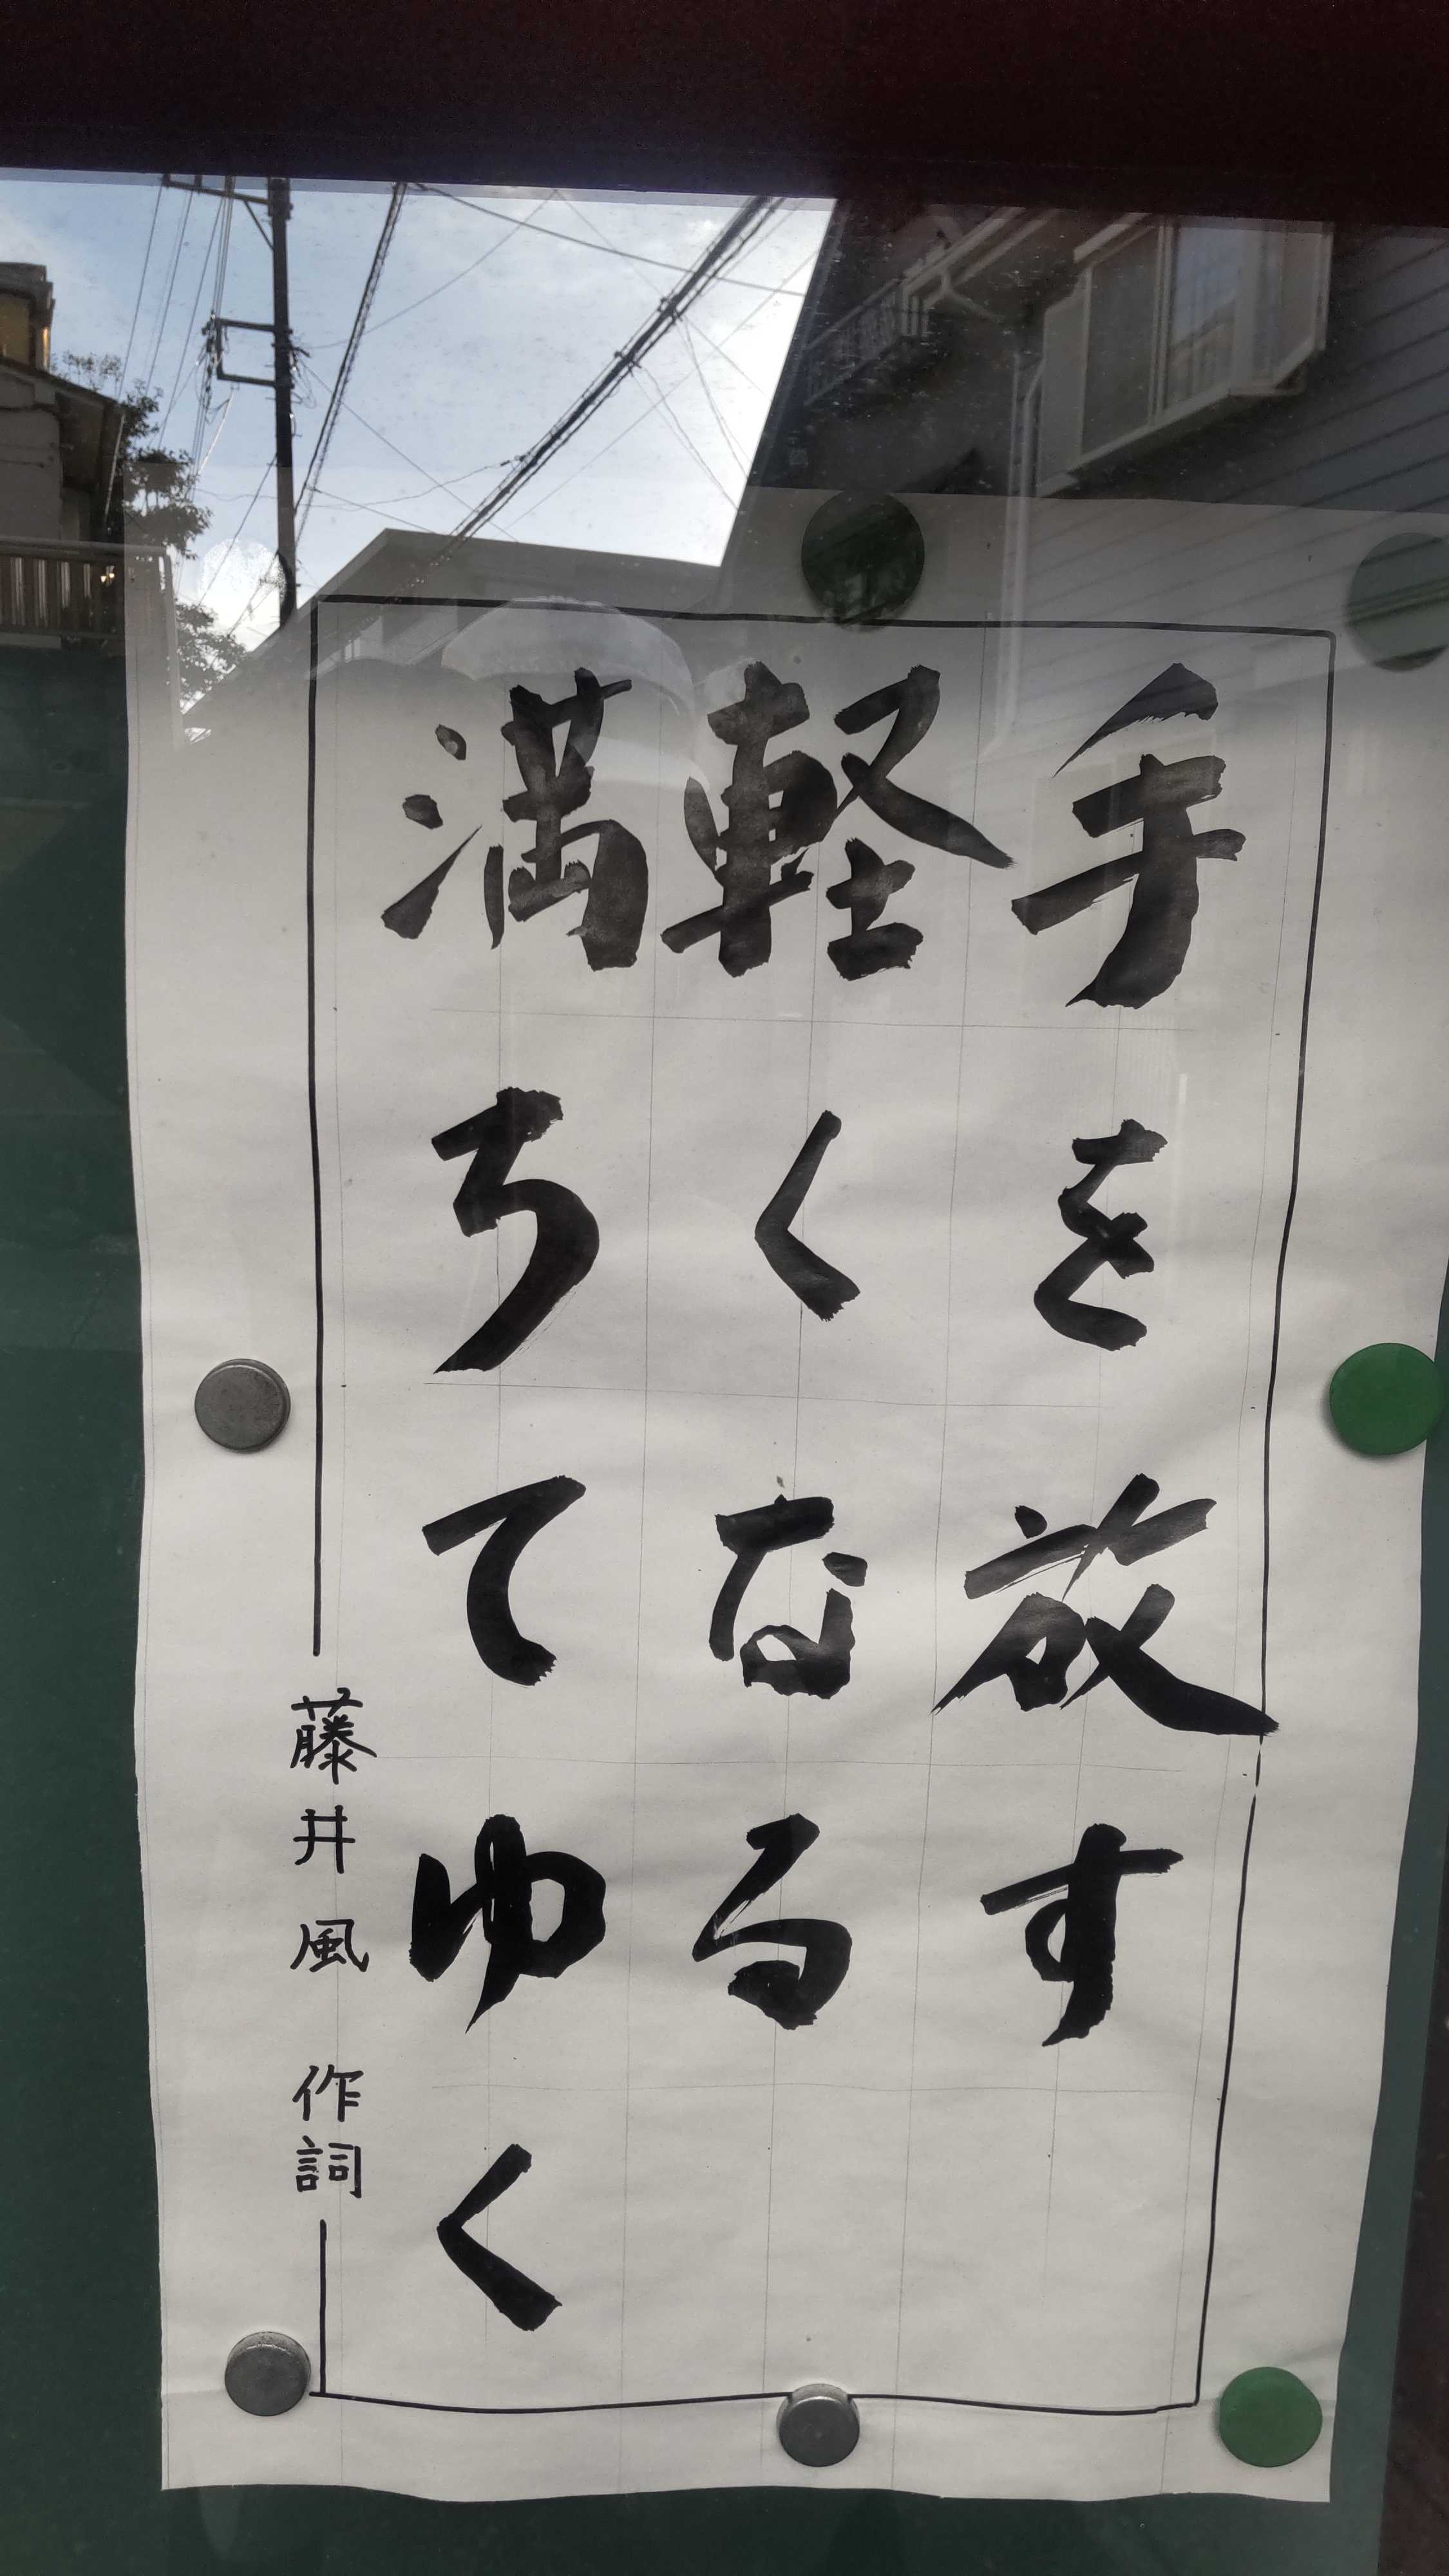 手を放す
軽くなる
満ちてゆく
藤井風 作詞